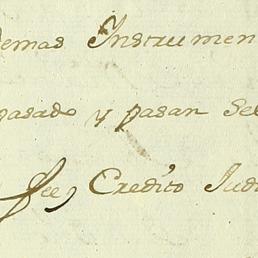 demas Instrumen
pasado y pasan se
fee, Credito Judi